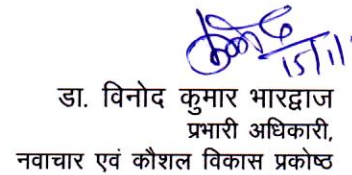 15/11
डा. विनोद कुमार भारद्वाज
प्रभारी अधिकारी,
नवाचार एवं कौशल विकास प्रकोष्ठ